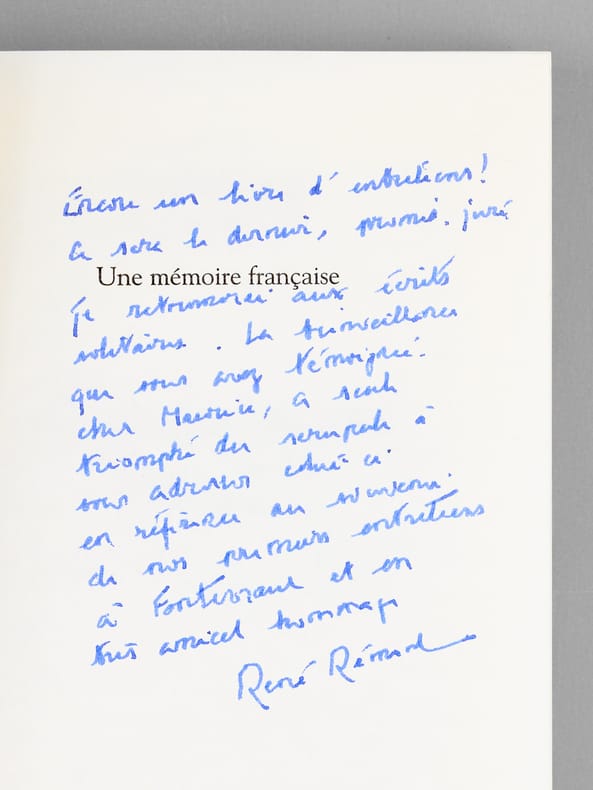 Encore un livre d'entretiens!
Ce sera le dernier, promis. juré
Une mémoire française
Je retournerai aux écrits
solitaires. La bienveillance
que vous avez témoignée.
cher Maurice, a seule
triomphé du scrupule à
vous adresser celui-ci
en référence au souvenir.
de nos premiers entretiens
à Fontevraud et en
très amical hommage
René Rémond